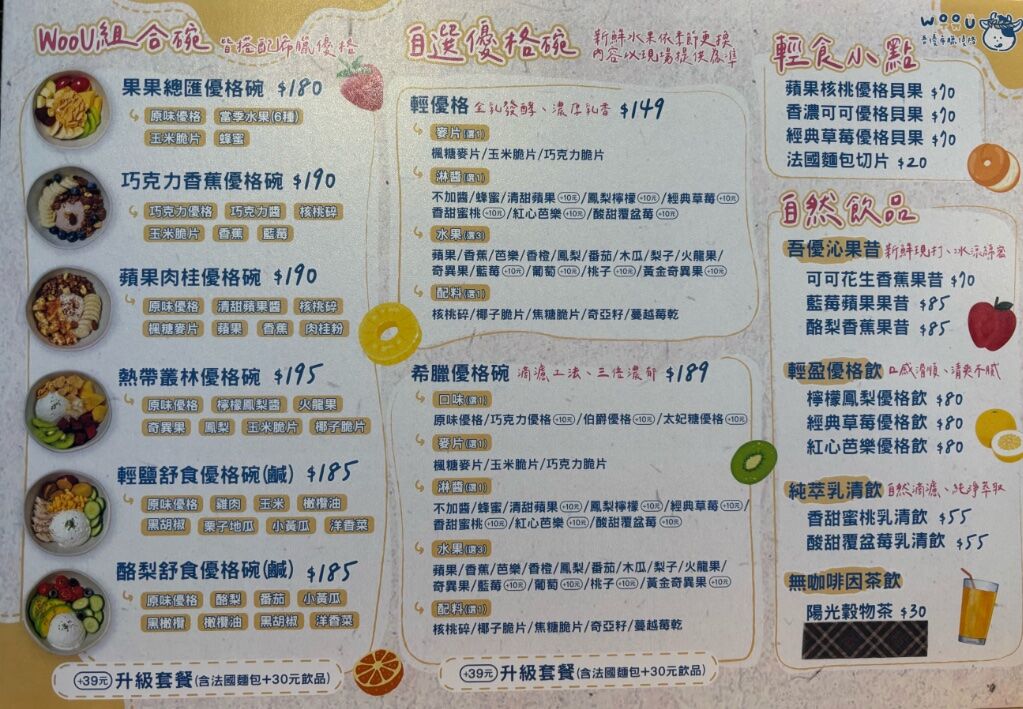 WooU組合碗 皆搭配希臘優格
果果總匯優格碗 $180
原味優格 當季水果(6種)
玉米脆片 蜂蜜
巧克力香蕉優格碗 $190
巧克力優格 巧克力醬 核桃碎
玉米脆片 香蕉 藍莓
蘋果肉桂優格碗 $190
原味優格 清甜蘋果醬 核桃碎
楓糖麥片 蘋果 香蕉 肉桂粉
熱帶叢林優格碗 $195
原味優格 檸檬鳳梨醬 火龍果
奇異果 鳳梨 玉米脆片 椰子脆片
輕鹽舒食優格碗(鹹) $185
原味優格 雞肉 玉米 橄欖油
黑胡椒 栗子地瓜 小黃瓜 洋香菜
酪梨舒食優格碗(鹹) $185
原味優格 酪梨 番茄 小黃瓜
黑橄欖 橄欖油 黑胡椒 洋香菜
+39元 升級套餐(含法國麵包+30元飲品)
自選優格碗 新鮮水果依季節更換
內容以現場提供為準
輕優格 全乳發酵、濃厚乳香 $149
麥片(選1)
楓糖麥片/玉米脆片/巧克力脆片
淋醬(選1)
不加醬/蜂蜜/清甜蘋果+10元/鳳梨檸檬+10元/經典草莓+10元/
香甜蜜桃+10元/紅心芭樂+10元/酸甜覆盆莓+10元
水果(選3)
蘋果/香蕉/芭樂/香橙/鳳梨/番茄/木瓜/梨子/火龍果/
奇異果/藍莓+10元/葡萄+10元/桃子+10元/黃金奇異果+10元
配料(選1)
核桃碎/椰子脆片/焦糖脆片/奇亞籽/蔓越莓乾
希臘優格碗 滴濾工法、三倍濃郁 $189
口味(選1)
原味優格/巧克力優格+10元/伯爵優格+10元/太妃糖優格+10元
麥片(選1)
楓糖麥片/玉米脆片/巧克力脆片
淋醬(選1)
不加醬/蜂蜜/清甜蘋果+10元/鳳梨檸檬+10元/經典草莓+10元/
香甜蜜桃+10元/紅心芭樂+10元/酸甜覆盆莓+10元
水果(選3)
蘋果/香蕉/芭樂/香橙/鳳梨/番茄/木瓜/梨子/火龍果/
奇異果/藍莓+10元/葡萄+10元/桃子+10元/黃金奇異果+10元
配料(選1)
核桃碎/椰子脆片/焦糖脆片/奇亞籽/蔓越莓乾
+39元 升級套餐(含法國麵包+30元飲品)
WooU
吾優希臘優格
輕食小點
蘋果核桃優格貝果 $70
香濃可可優格貝果 $70
經典草莓優格貝果 $70
法國麵包切片 $20
自然飲品
吾優沁果昔 新鮮現打、冰涼綿密
可可花生香蕉果昔 $70
藍莓蘋果果昔 $85
酪梨香蕉果昔 $85
輕盈優格飲 口感滑順、清爽不膩
檸檬鳳梨優格飲 $80
經典草莓優格飲 $80
紅心芭樂優格飲 $80
純萃乳清飲 自然滴濾、純淨萃取
香甜蜜桃乳清飲 $55
酸甜覆盆莓乳清飲 $55
無咖啡因茶飲
陽光穀物茶 $30